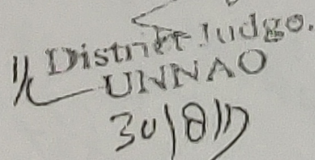 District Judge.
UNNAO
30/8/17